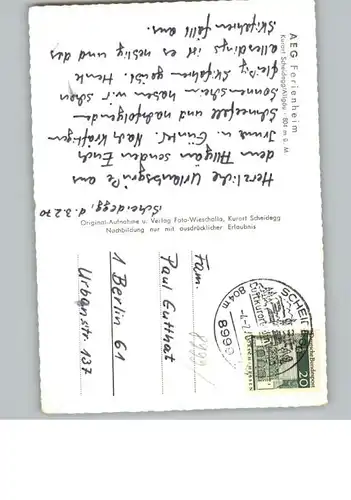 AEG Ferienheim
Kurort Scheidegg/Allgäu · 804 m ü. M.
Scheidegg, d. 3.2.70
Herzliche Urlaubsgrüße aus
dem Allgäu senden Euch
Irma u. Günter. Nach kräftigem
Schneefall und nachfolgenden
Sonnenschein haben wir schon
fleißig Skifahren geübt. Heute
allerdings ist es neblig und das
Skifahren fällt aus.
Original-Aufnahme u. Verlag Foto-Wieschalla, Kurort Scheidegg
Nachbildung nur mit ausdrücklicher Erlaubnis
Fam.
Paul Gutthat
1 Berlin 61
Urbanstr. 137
8999
804 m
8999
20